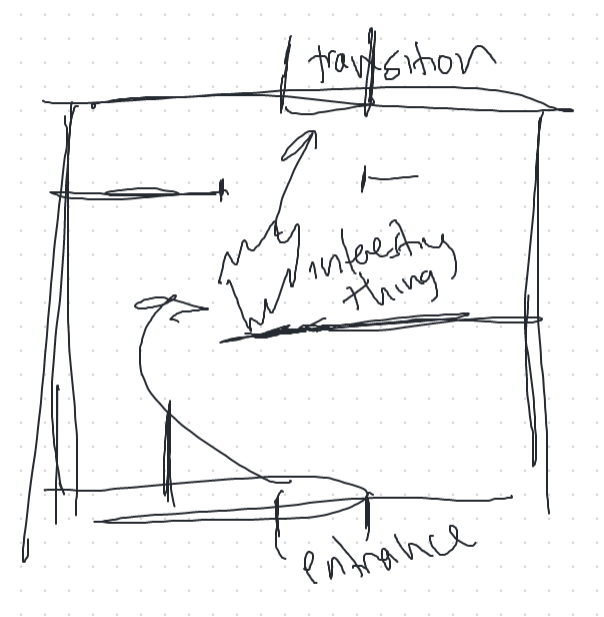 transition
interesting
thing
entrance